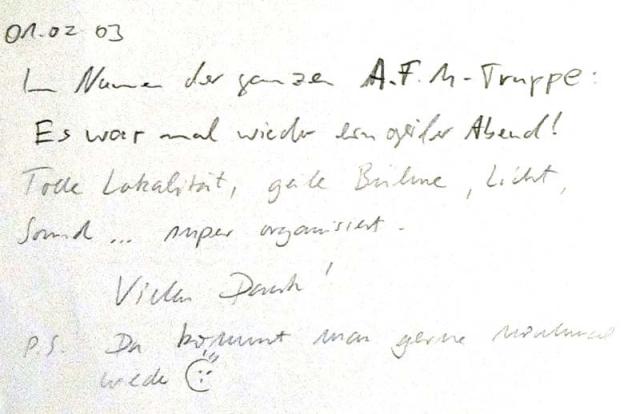 01.02 03
Im Namen der ganzen A.F.M-Truppe:
Es war mal wieder ein geiler Abend!
Tolle Lokalität, geile Bühne, Licht,
Sound ... super organisiert.
Vielen Dank!
P.S. Da kommt man gerne nochmal
wieder